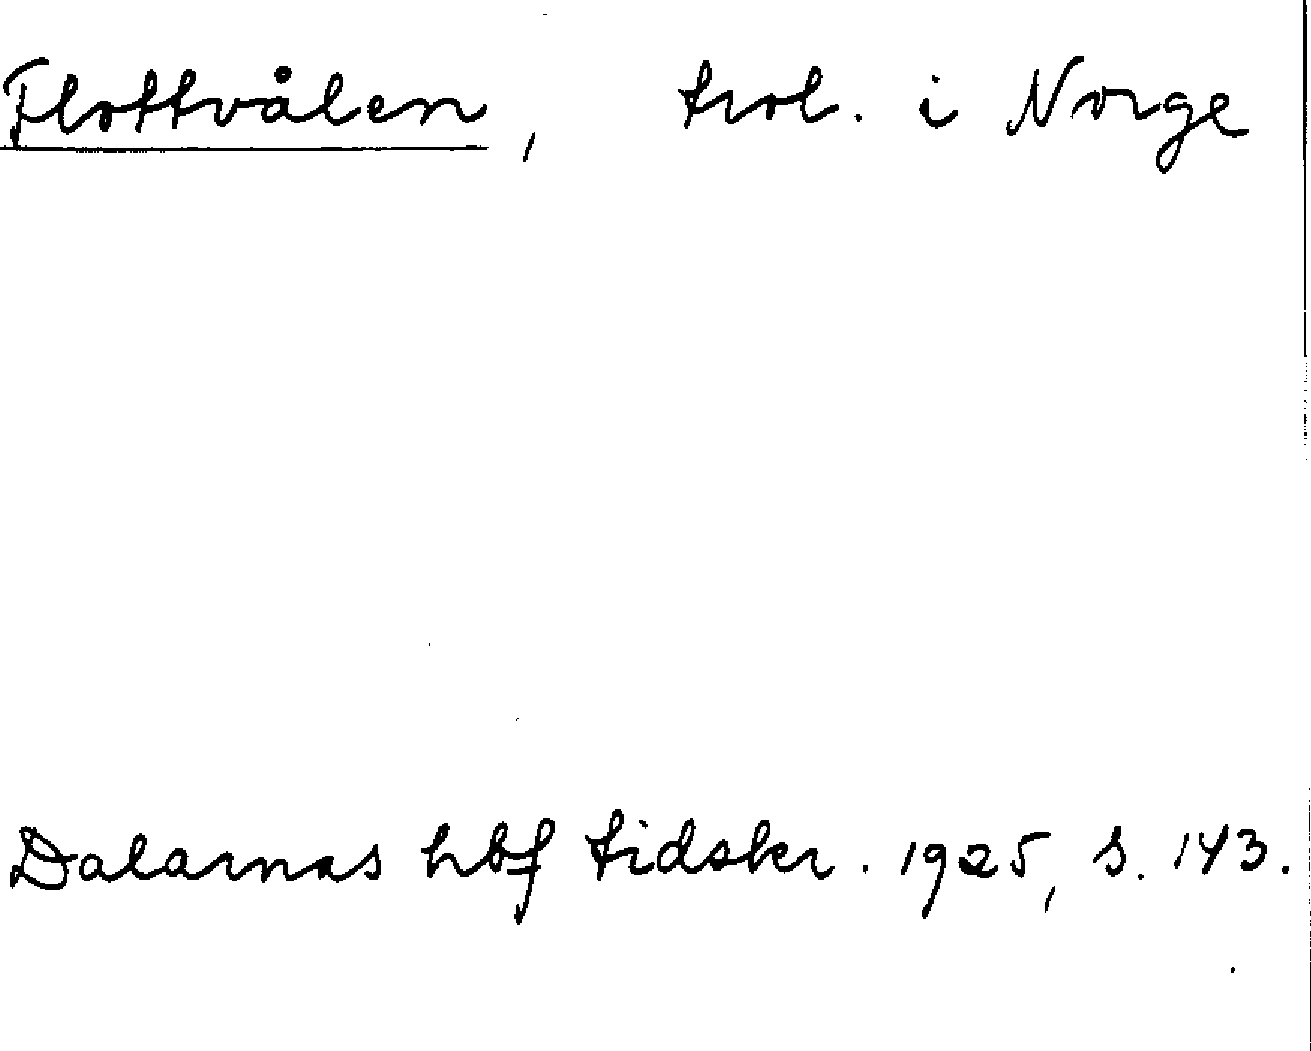 Flottvålen, trol. i Norge
Dalarnas hbf tidskr. 1925, s. 143.